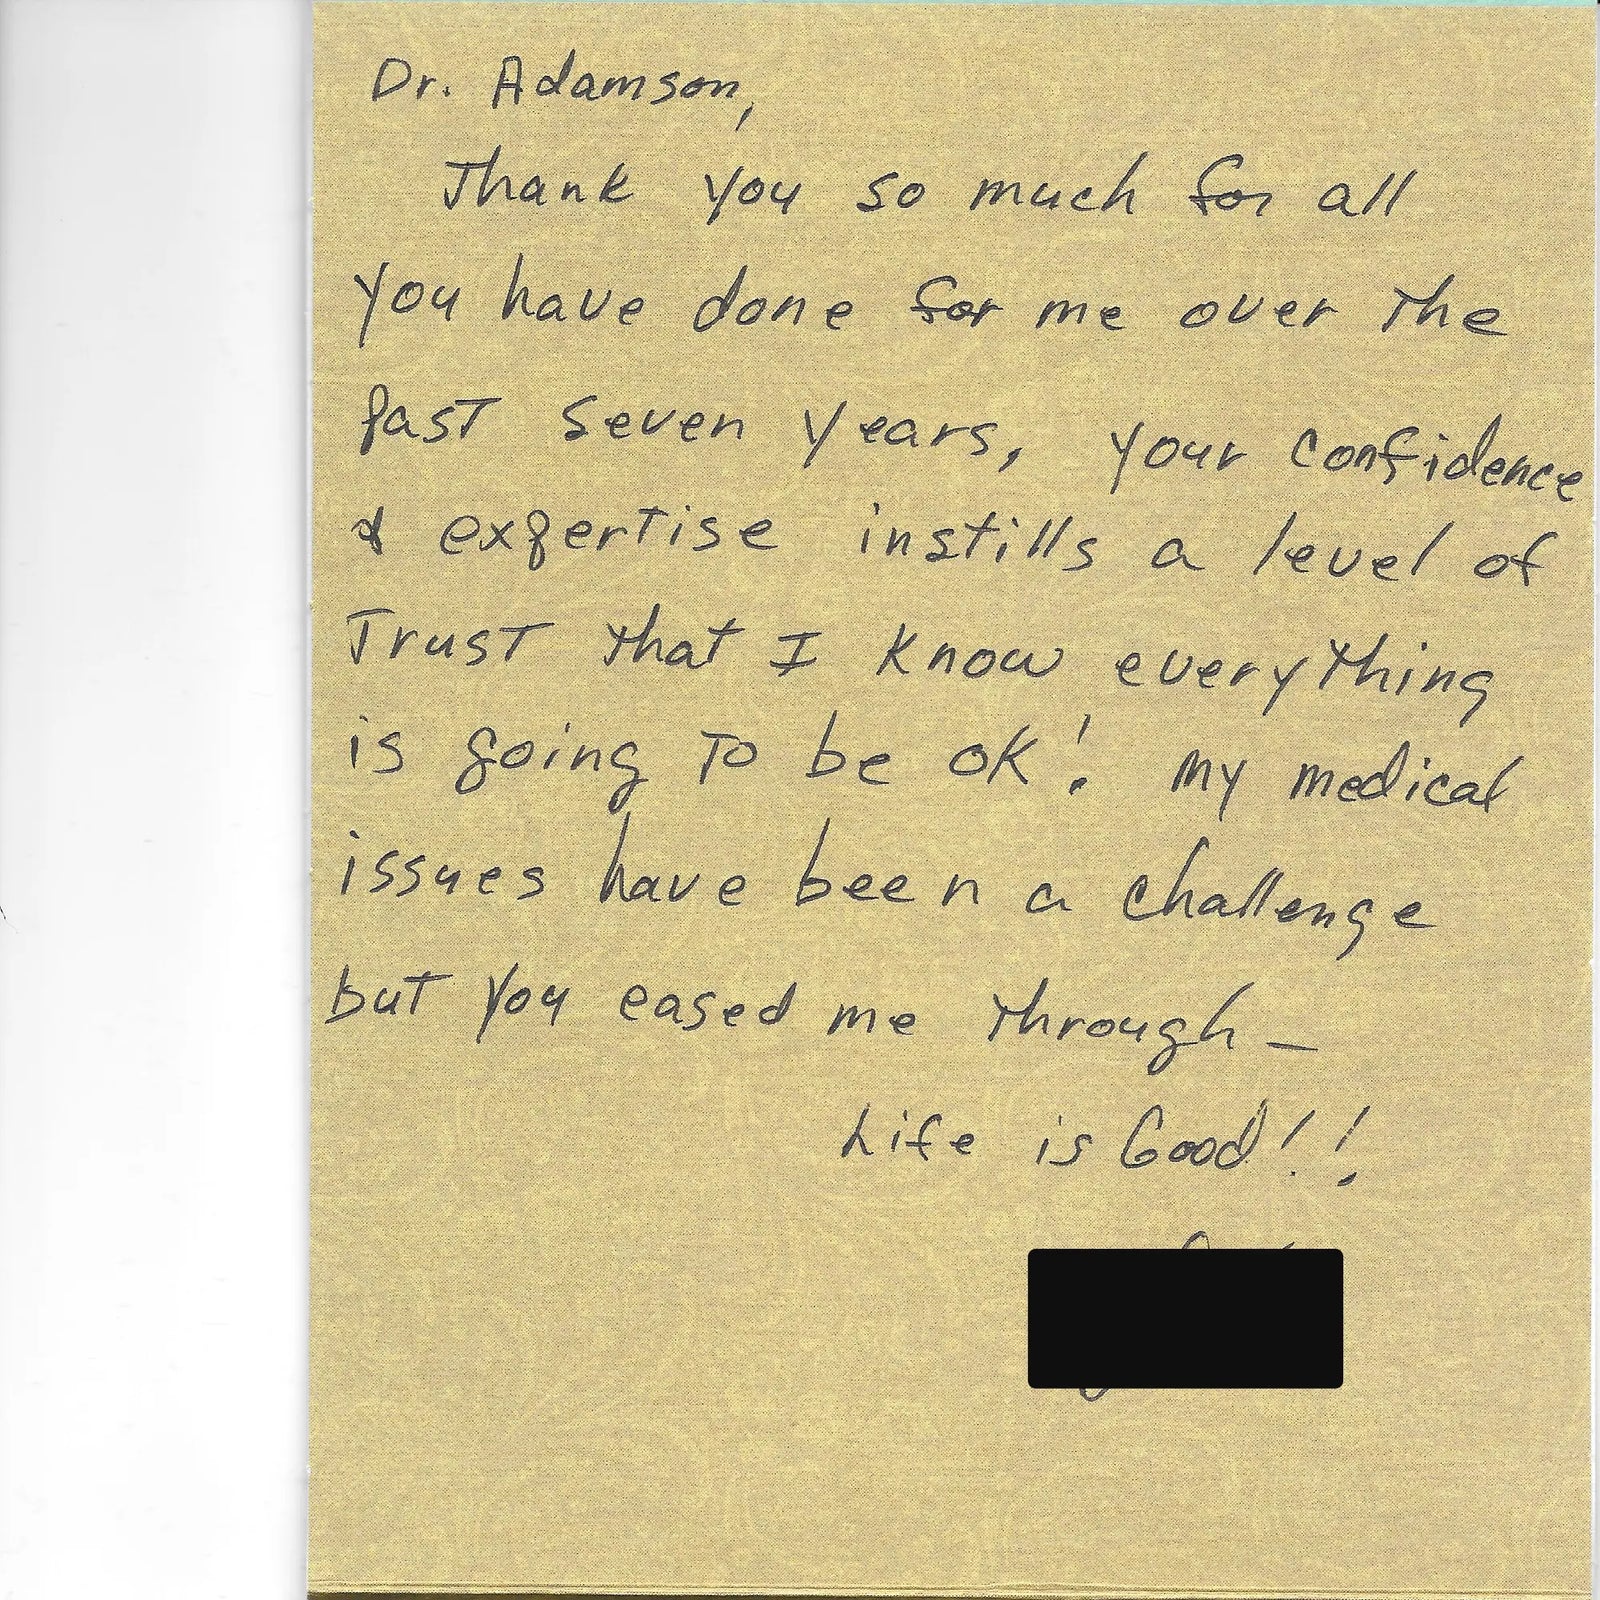 Dr. Adamson,
Thank you so much for all
you have done for me over the
past seven years, your confidence
& expertise instills a level of
Trust that I know everything
is going to be ok! my medical
issues have been a challenge
but you eased me through-
Life is Good!!